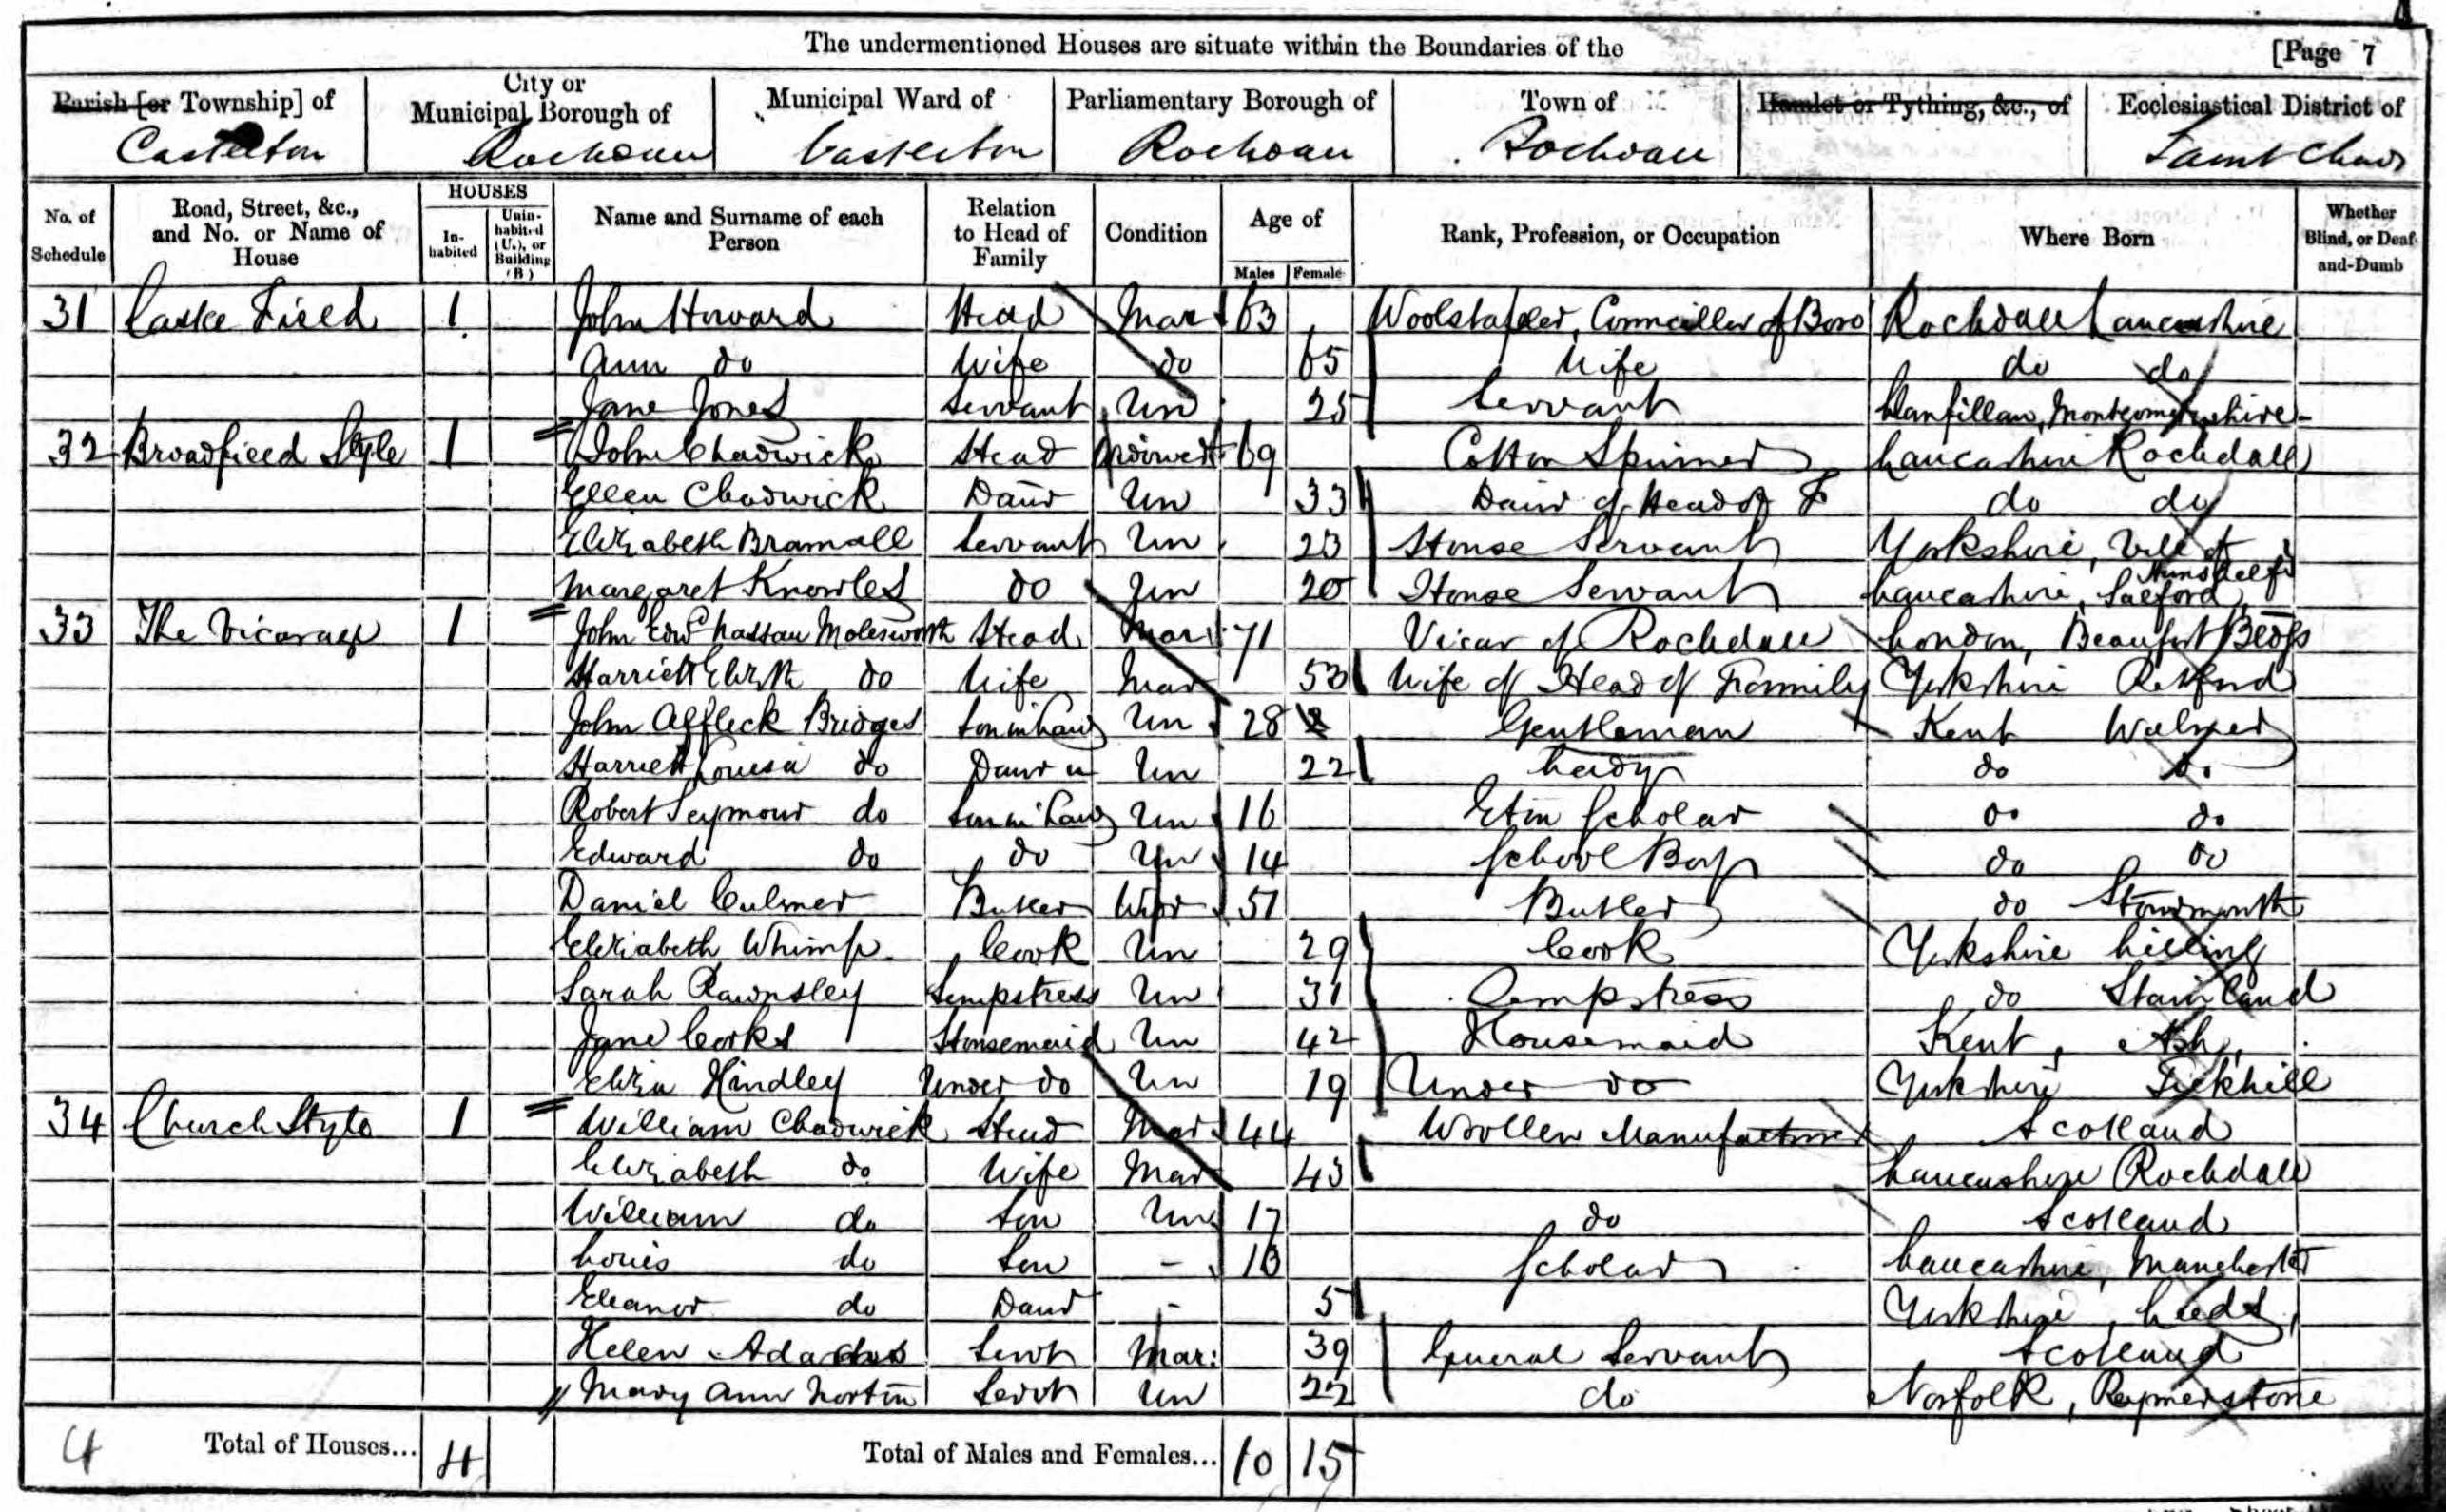 The undermentioned Houses are situate within the Boundaries of the [Page 7
Parish [or Township] of City or Municipal Borough of Municipal Ward of Parliamentary Borough of Town of Hamlet or Tything, &c., of Ecclesiastical District of
Castleton Rochdale Castleton Rochdale Rochdale Saint Chads
No. of Schedule Road, Street, &c., and No. or Name of House HOUSES In-habited Unin-habited (U.), or Building (B) Name and Surname of each Person Relation to Head of Family Condition Age of Males Female Rank, Profession, or Occupation Where Born Whether Blind, or Deaf-and-Dumb
31 Castle Field 1 John Howard Head Mar 63 Woolstapler, Councillor of Boro Rochdale Lancashire
Ann do Wife do 65 Wife do do
Jane Jones Servant Un 25 Servant Llanfillan, Montgomeryshire
32 Broadfield Style 1 John Chadwick Head Widower 69 Cotton Spinner Lancashire Rochdale
Ellen Chadwick Daur Un 33 Daur of Head of F do do
Elizabeth Bramall Servant Un 23 House Servant Yorkshire, Vill of Hunshelf
Margaret Knowles do Un 20 House Servant Lancashire, Salford
33 The Vicarage 1 John Edwd Nassau Molesworth Head Mar 71 Vicar of Rochdale London, Beaufort Bldgs
Harriett Elizth do Wife Mar 53 Wife of Head of Family Yorkshire Retford
John Affleck Bridges Son in Law Un 28 Gentleman Kent Walmer
Harriett Louisa do Daur Un 22 Lady do do
Robert Seymour do Son in Law Un 16 Eton Scholar do do
Edward do do Un 14 School Boy do do
Daniel Culmer Butler Widr 51 Butler do Stourmouth
Elizabeth Whimp Cook Un 29 Cook Yorkshire
Sarah Rawnsley Sempstress Un 31 Sempstress do Stainland
Jane Cooks Housemaid Un 42 Housemaid Kent, Ash,
Eliza Hindley Under do Un 19 Under do Yorkshire Tickhill
34 Church Style 1 William Chadwick Head Mar 44 Woollen Manufacturer Scotland
Elizabeth do Wife Mar 43 Lancashire Rochdale
William do Son Un 17 do Scotland
Louis do Son - 13 Scholar Lancashire, Manchester
Eleanor do Daur - 5 Yorkshire, Leeds,
Helen Adams Servt Mar: 39 General Servant Scotland
Mary Ann Norton Servt Un 22 do Norfolk, Reymerstone
4 Total of Houses... 4 Total of Males and Females... 10 15